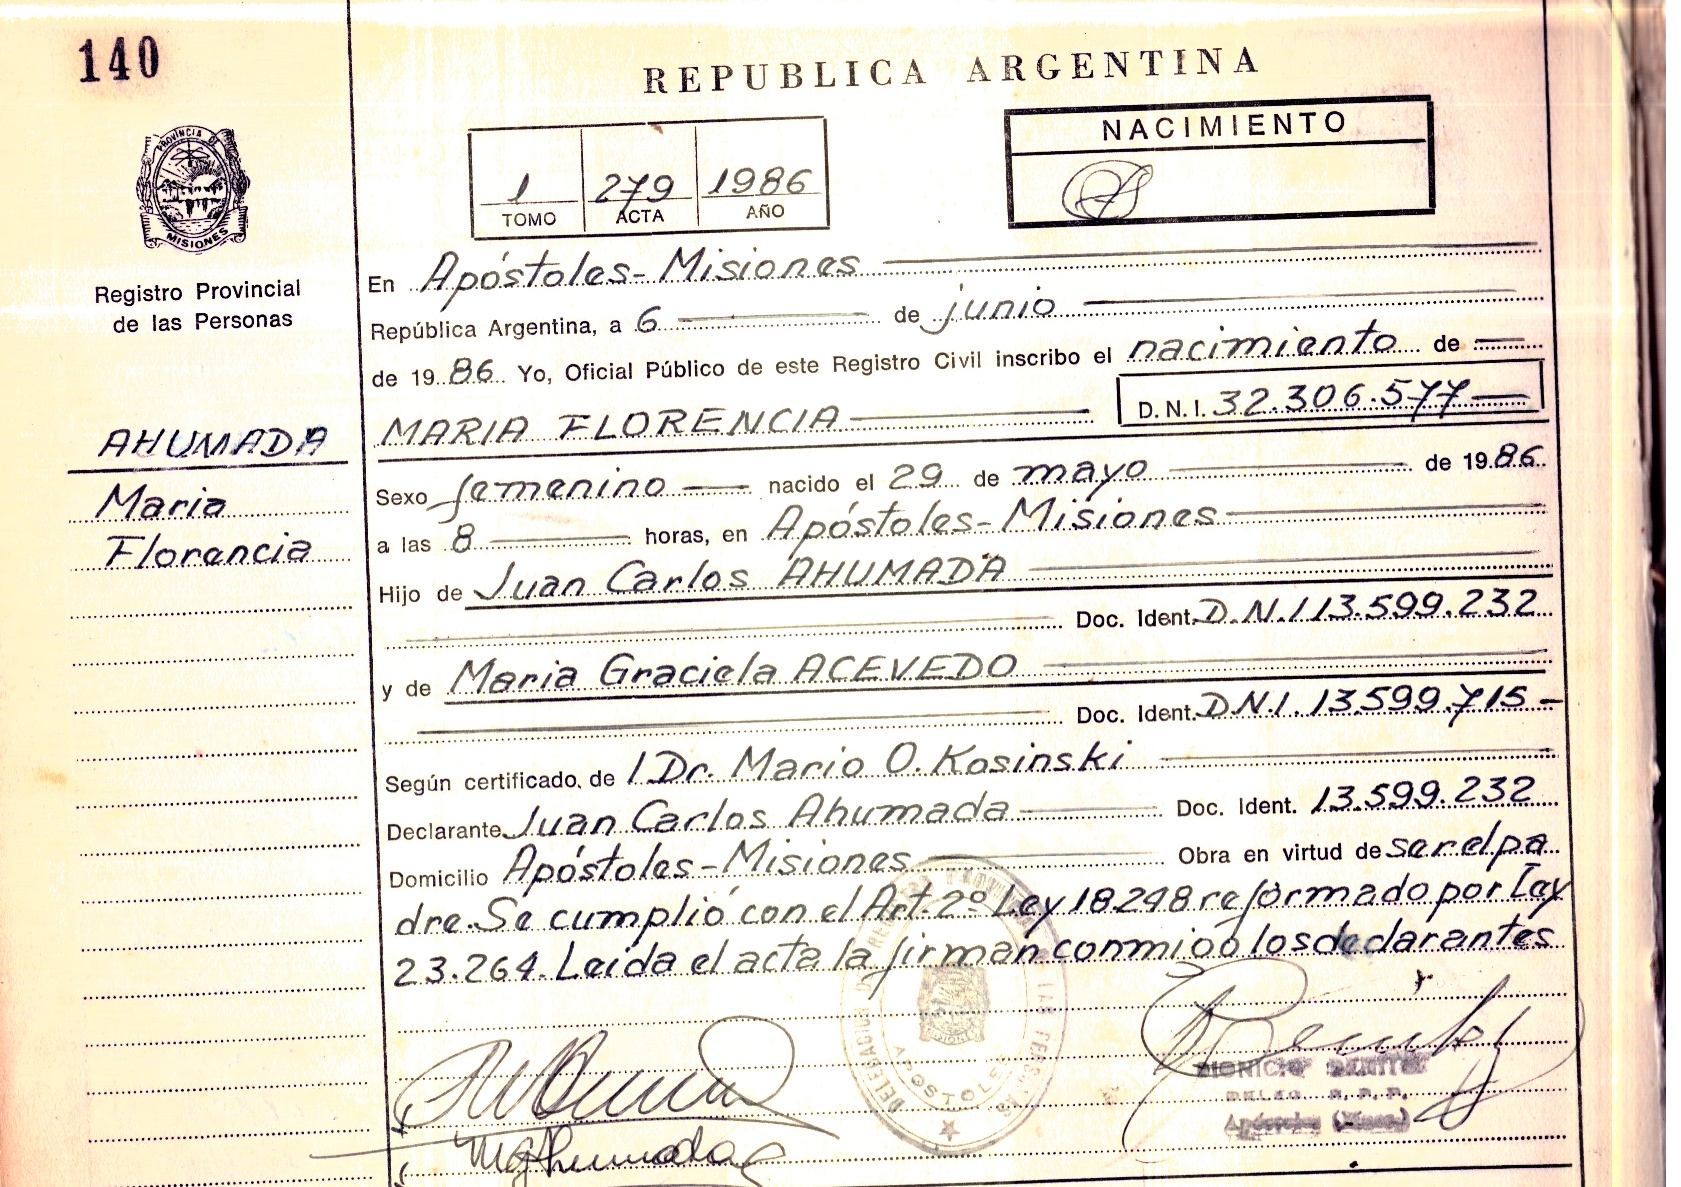 140
REPUBLICA ARGENTINA
NACIMIENTO
1 279 1986
TOMO ACTA AÑO
PROVINCIA DE
MISIONES
Registro Provincial
de las Personas
AHUMADA
Maria
Florencia
En Apóstoles-Misiones
República Argentina, a 6 de junio
de 1986 Yo, Oficial Público de este Registro Civil inscribo el nacimiento de
MARIA FLORENCIA D.N.I. 32.306.577
Sexo femenino nacido el 29 de mayo de 1986
a las 8 horas, en Apóstoles-Misiones
Hijo de Juan Carlos AHUMADA
Doc. Ident. D.N.I 13.599.232
y de Maria Graciela ACEVEDO
Doc. Ident. D.N.I. 13.599.715
Según certificado de l Dr. Mario O. Kosinski
Declarante Juan Carlos Ahumada Doc. Ident. 13.599.232
Domicilio Apóstoles-Misiones Obra en virtud de ser el pa
dre. Se cumplió con el Art. 2º Ley 18.248 reformado por Ley
23.264. Leida el acta la firman conmigo los declarantes
APOSTOLES
DIONICIO BENITEZ